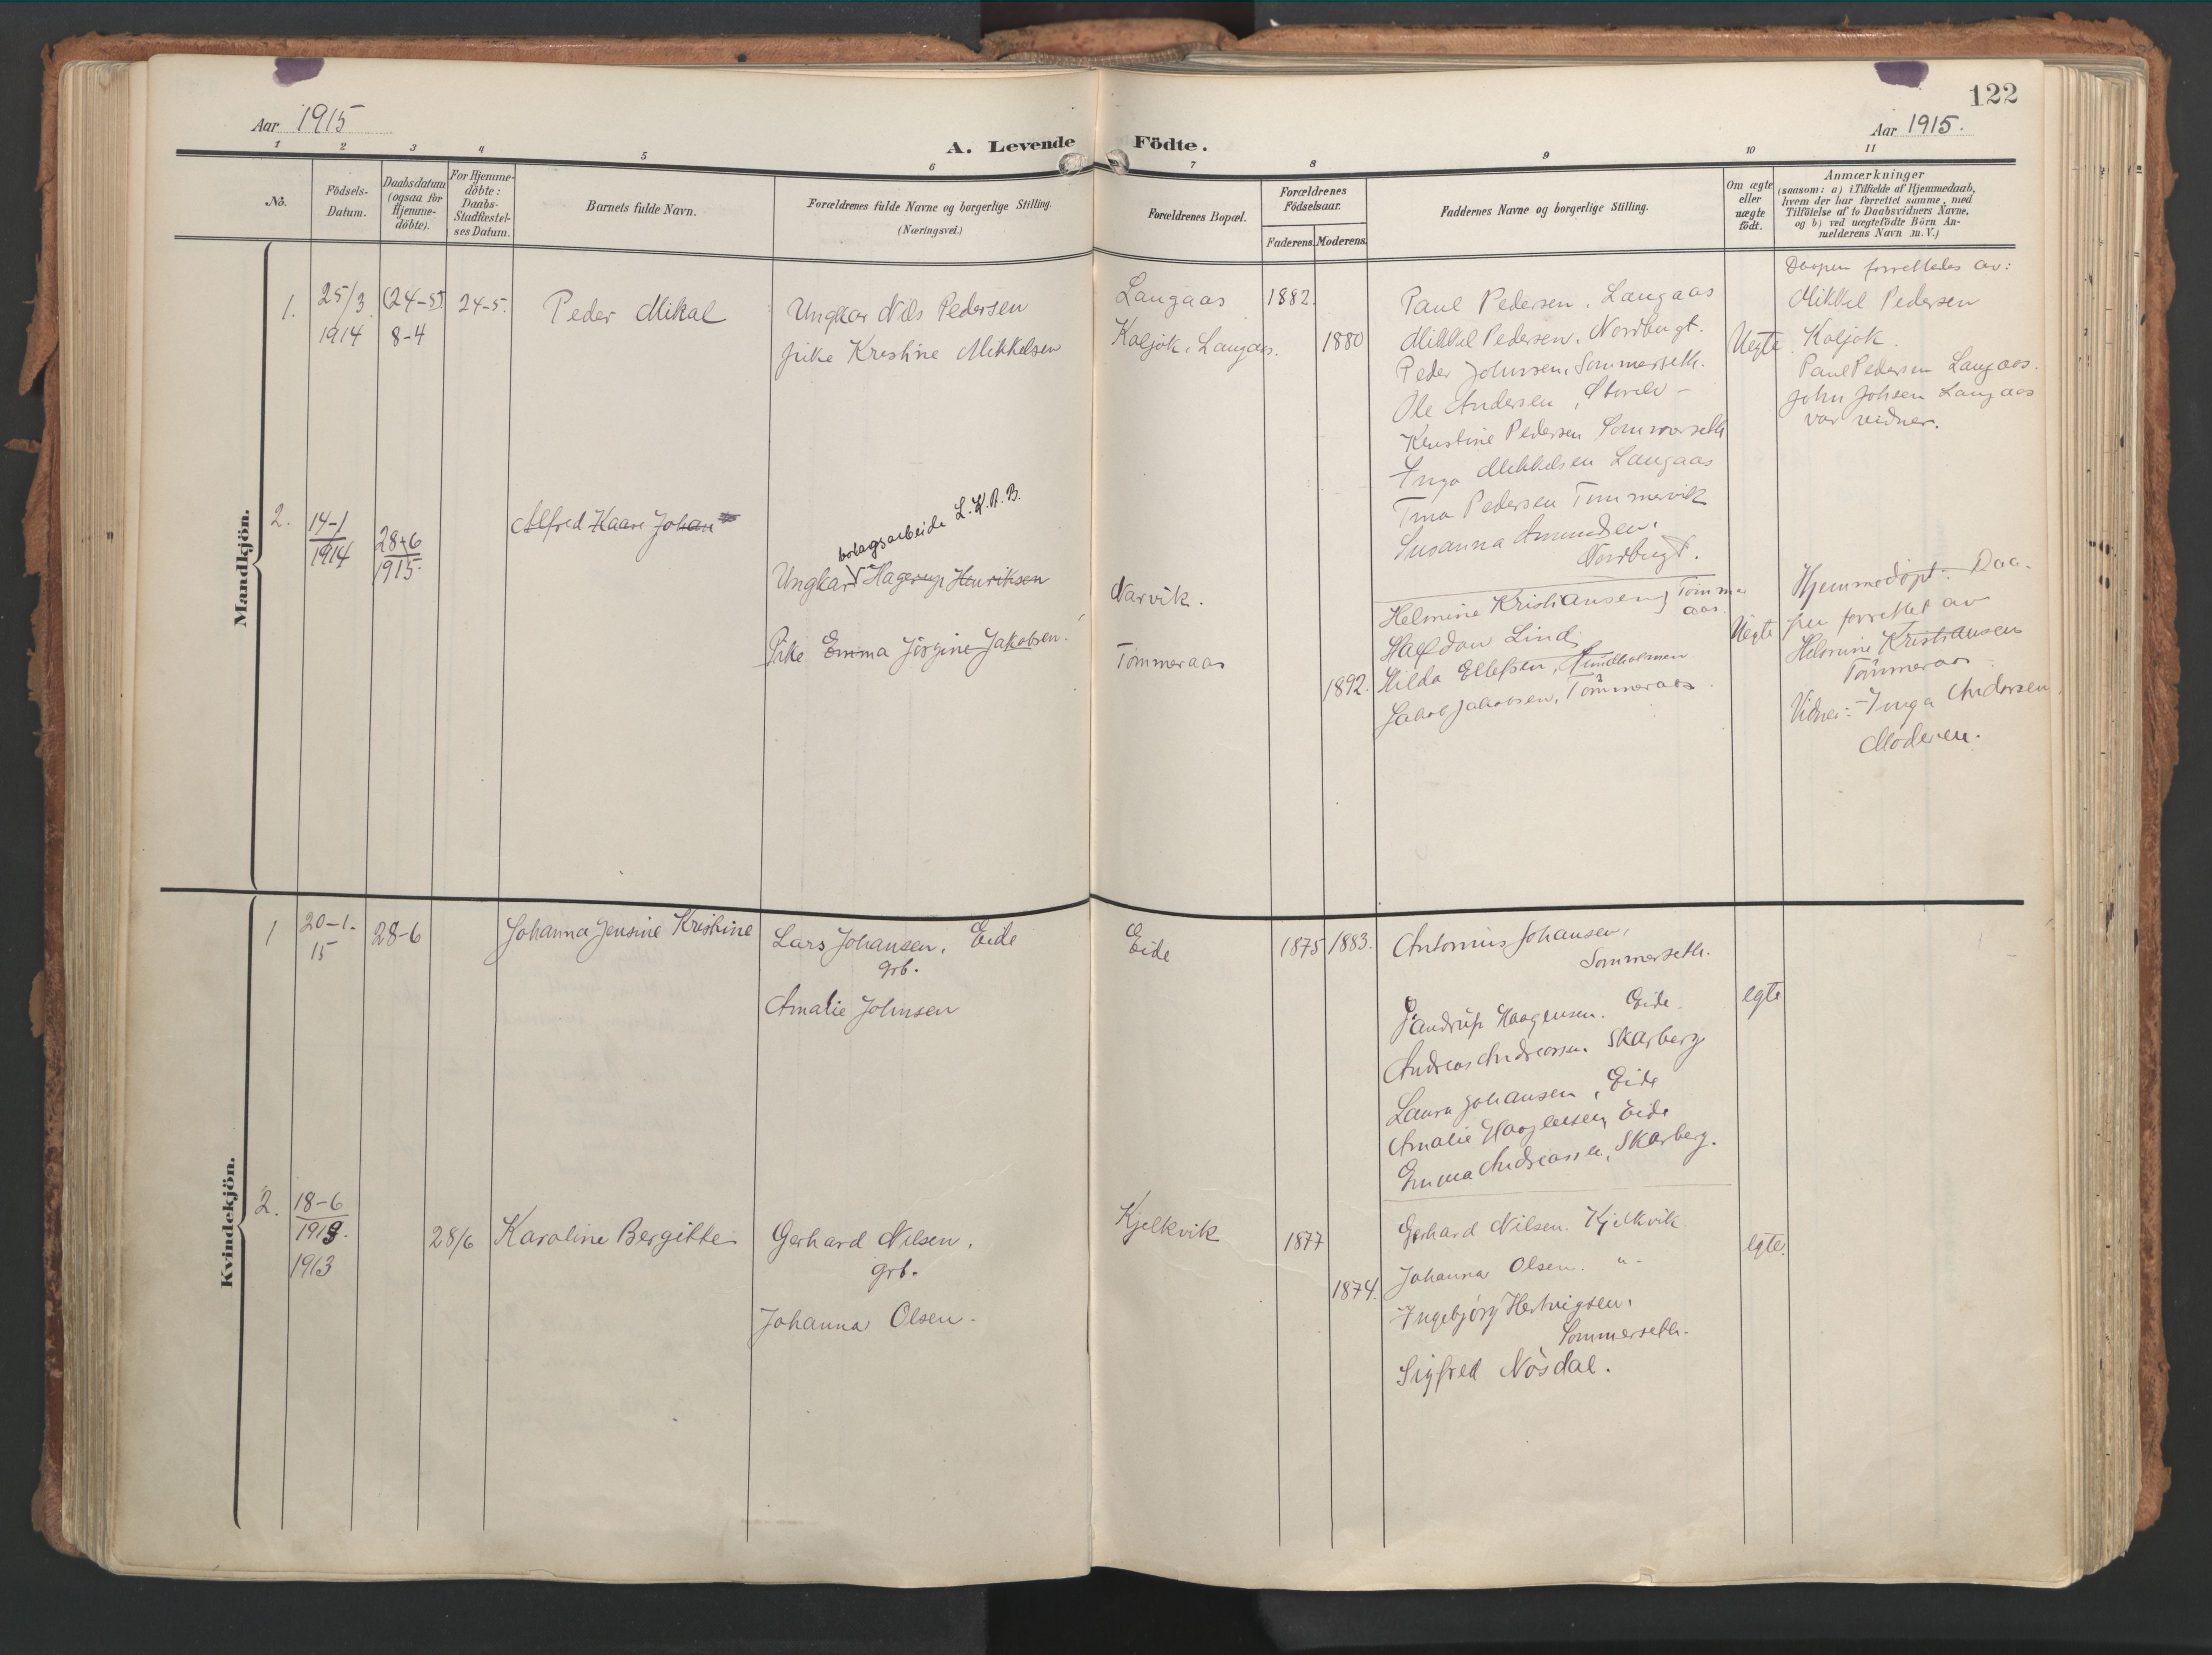 122
Aar 1915
A. Levende Födte.
Aar 1915.
1 2 3 4 5 6 7 8 9 10 11
No.
Födsels-
Datum.
Daabsdatum
(ogsaa for
Hjemme-
döbte).
For Hjemme-
döbte:
Daabs-
Stadfæstel-
ses Datum.
Barnets fulde Navn.
Forældrenes fulde Navne og borgerlige Stilling.
(Næringsvei.)
Forældrenes Bopæl.
Forældrenes
Födselsaar.
Faderens. Moderens.
Faddernes Navne og borgerlige Stilling.
Om ægte
eller
uægte
födt.
Anmærkninger
(saasom: a) i Tilfælde af Hjemmedaab,
hvem der har forrettet samme, med
Tilföielse af to Daabsvidners Navne,
og b) ved uægtefödte Börn An-
melderens Navn m. V.)
Mandkjön.
1. 25/3 1914
(24-5)
8-4
24-5.
Peder Mikal
Ungkar Nils Pedersen
Pike Kristine Mikkelsen
Langaas
Koljok, Langaas.
1882.
1880
Paul Pedersen, Langaas
Mikkel Pedersen, Nordbugt.
Peder Johnsen, Sommerseth.
Ole Andersen, Storelv -
Kristine Pedersen Sommerseth
Inga Mikkelsen Langaas
Tina Pedersen Tømmervik
Susanna Amundsen,
Nordbugt.
Uegte
Daapen forrettedes av:
Mikkel Pedersen
Koljok.
Paul Pedersen Langaas.
John Johsen Langaas
var vidner.
2. 14-1
1914
28-6
1915.
Alfred Kaare Johan
bolagsarbeide L.K.A.B.
Ungkar Hagerup Henriksen
Pike Emma Jörgine Jakobsen.
Narvik.
Tömmeraas
1892.
Helmine Kristiansen, Tömmer
aas.
Halfdan Lind
Hilda Ellefsen,
Jakob Jakobsen, Tömmeraas.
Uegte
Hjemmedöpt. Daa-
pen forrettet av
Helmine Kristiansen
Tömmeraas
Vidner: Inga Andersen
Moderen.
Kvindekjön.
1 20-1.
15
28-6
Johanna Jensine Kristine
Lars Johansen, Eide
grb.
Amalie Johnsen
Eide
1875 1883.
Antonius Johansen,
Sommerseth.
Jandrup Haagensen. Eide
Andreas Andreassen Skarberg
Laura Johansen, Eide
Amalie Haagensen, Eide
Emma Andreassen, Skarberg.
egte
2. 18-6
1913.
1913
28/6
Karoline Bergitte
Gerhard Nilsen,
grb.
Johanna Olsen.
Kjelkvik
1877
1874.
Gerhard Nilsen. Kjelkvik
Johanna Olsen. "-
Ingebjørg Hertvigsen.
Sommerseth.
Sigfred Nösdal.
egte.